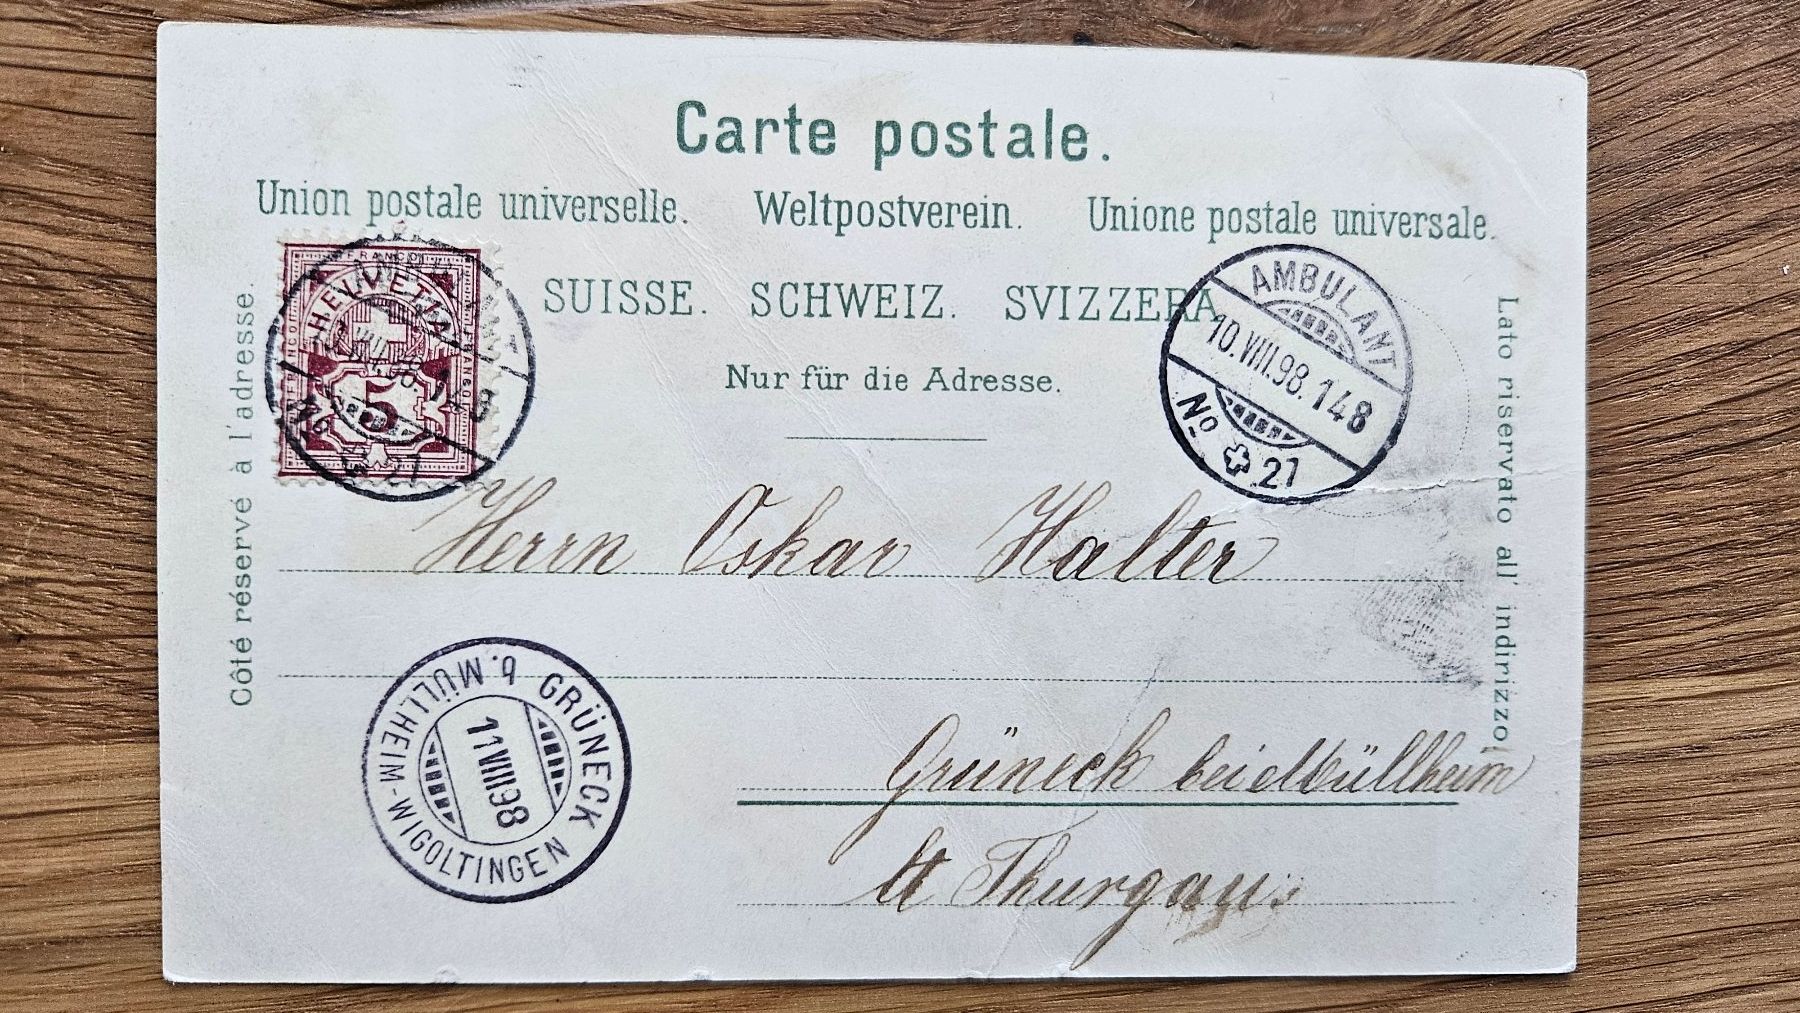 Carte postale.
Union postale universelle. Weltpostverein. Unione postale universale.
SUISSE. SCHWEIZ. SVIZZERA
Nur für die Adresse.
Côté réservé à l'adresse.
Lato riservato all' indirizzo
FRANCO
HELVETIA
FRANCO
FRANCO
5
No 21
AMBULANT
10.VIII.98. 148
No 21
Herrn Oskar Halter
GRÜNECK b. MÜLLHEIM-WIGOLTINGEN
11 VIII 98
Grüneck bei Müllheim
Ct Thurgau.